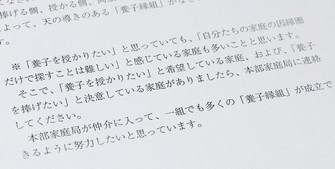 捧げる側、授かる側、両
よって、天の導きのある「養子縁組」が
す。
※「養子を授かりたい」と思っていても、「自分たちの家庭の因縁圏
だけで探すことは難しい」と感じている家庭も多いことと思います。
そこで、「養子を授かりたい」と希望している家庭、および、「養子
を捧げたい」と決意している家庭がありましたら、本部家庭局に連絡
してください。
本部家庭局が仲介に入って、一組でも多くの「養子縁組」が成立で
きるように努力したいと思っています。